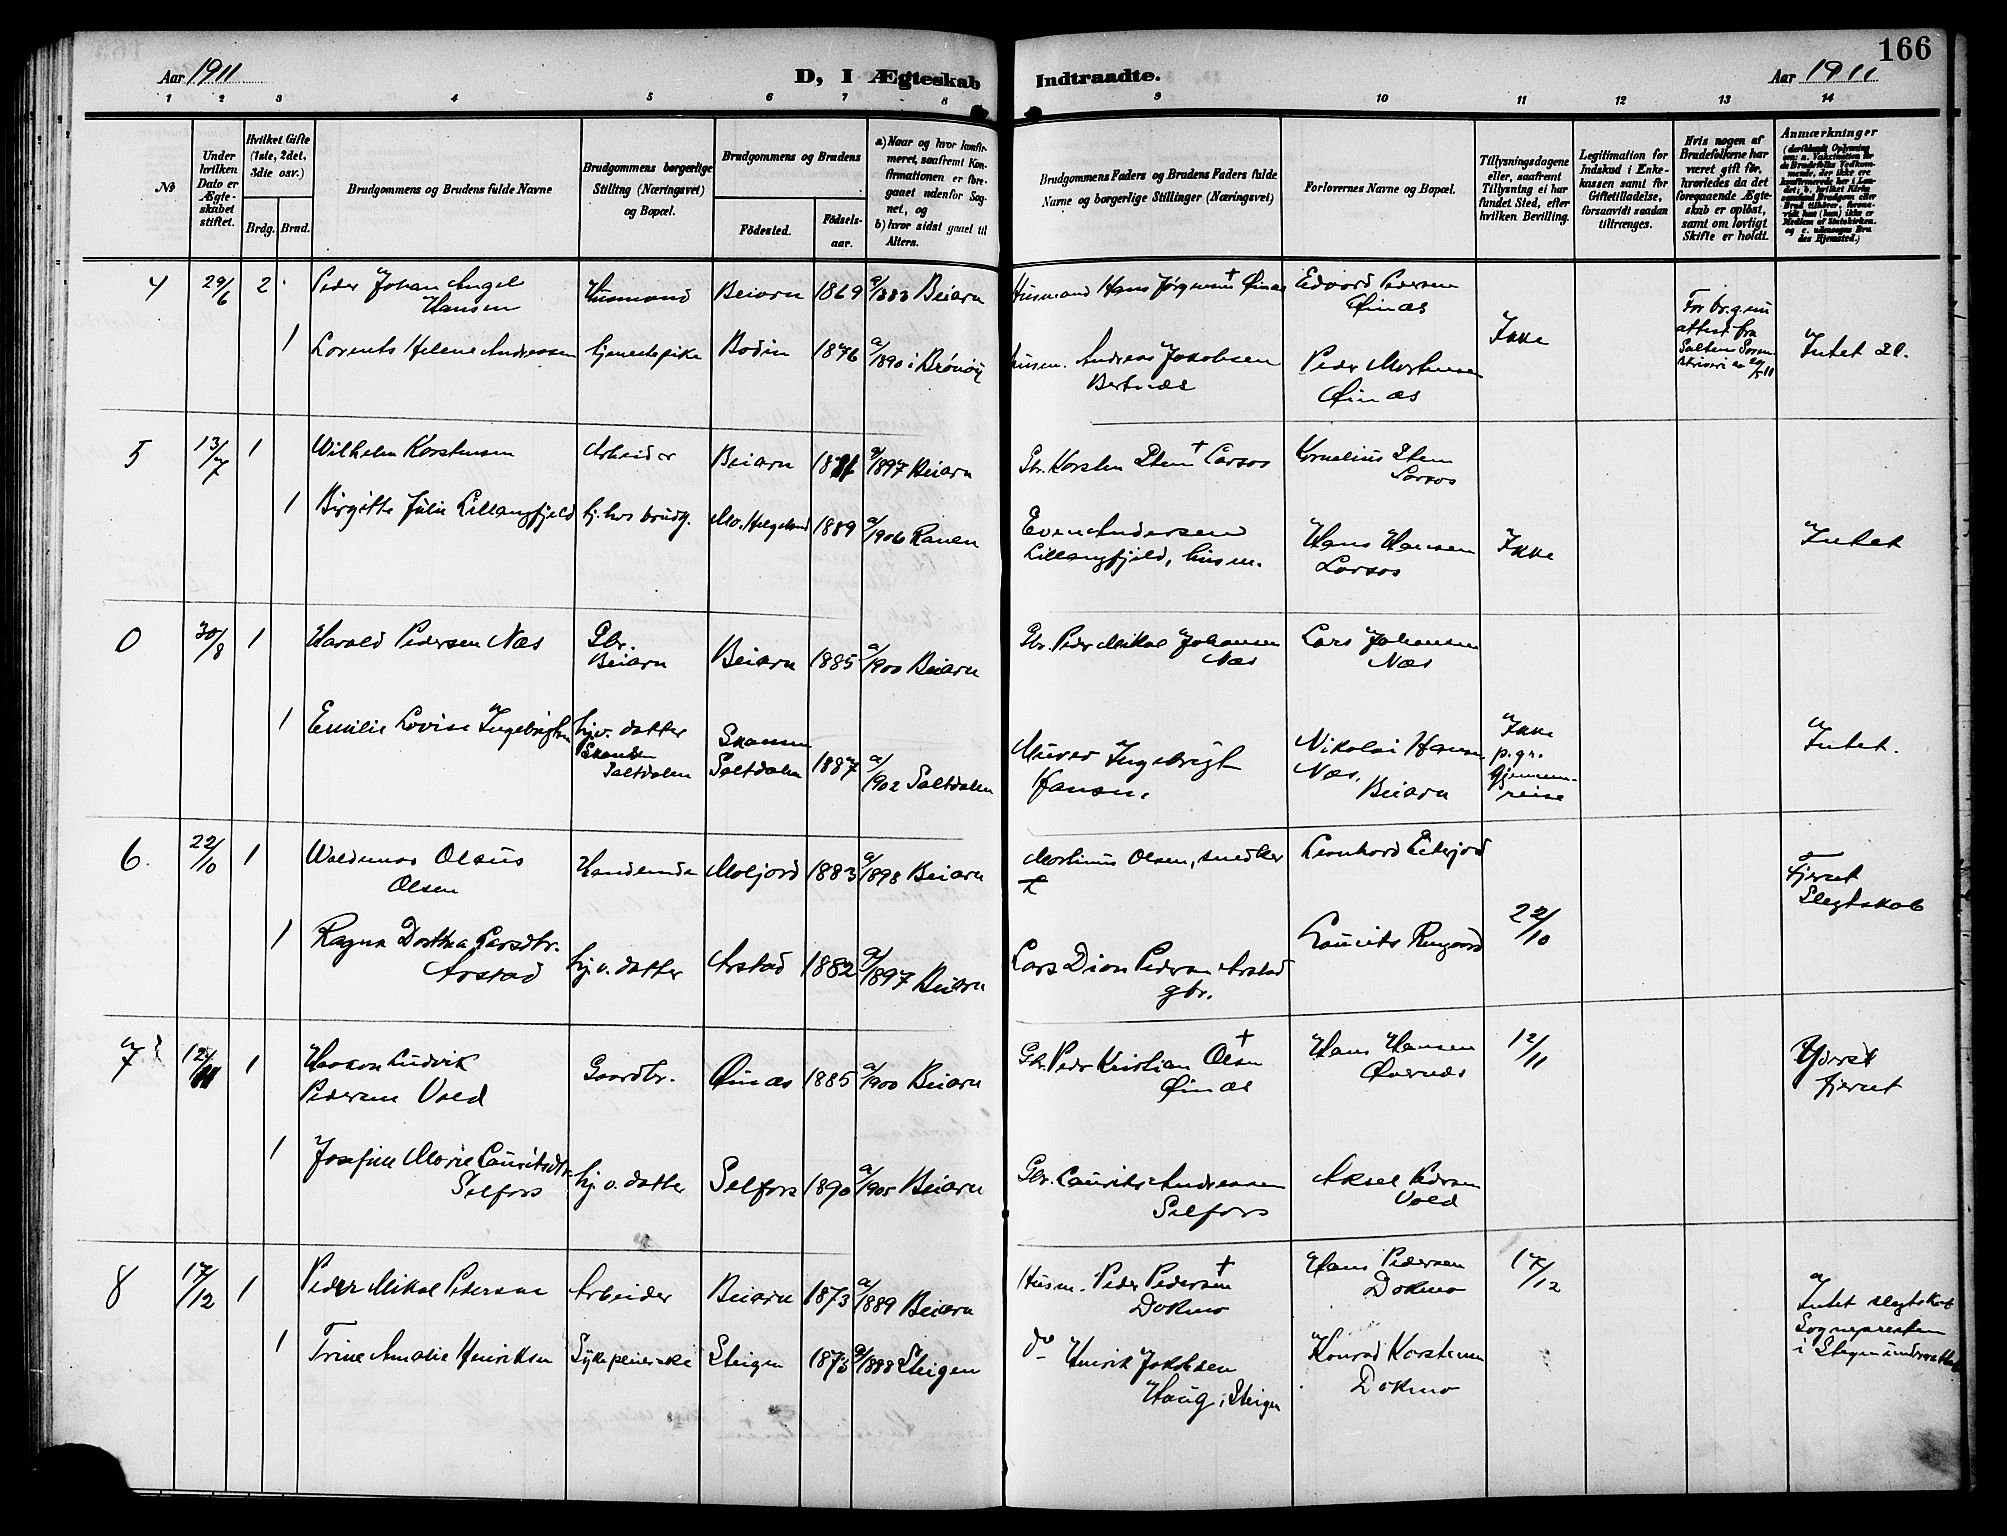 166
Aar 1911
D, I Ægteskab
Indtraadte.
Aar 1911
1 2 3 4 5 6 7 8 9 10 11 12 13 14
No
Under hvilken Dato er Ægteskabet stiftet.
Hvilket Gifte (1ste, 2det, 3die osv.)
Brdg. Brud.
Brudgommens og Brudens fulde Navne
Brudgommens borgerlige Stilling (Næringsvei) og Bopæl.
Brudgommens og Brudens
Födested.
Födselsaar.
a) Naar og hvor konfirmeret, saafremt Konfirmationen er foregaaet udenfor Sognet, og
b) hvor sidst gaaet til Alters.
Brudgommens Faders og Brudens Faders fulde Navne og borgerlige Stillinger (Næringsvei)
Forlovernes Navne og Bopæl.
Tillysningsdagene eller, saafremt Tillysning ei har fundet Sted, efter hvilken Bevilling.
Legitimation for Indskud i Enkekassen samt for Giftetilladelse, forsaavidt saadan tiltrænges.
Hvis nogen af Brudefolkene har været gift før, hvorledes da det foregaaende Ægteskab er oplöst, samt om lovligt Skifte er holdt.
Anmærkninger
4 29/6 2 Peder Johan Angel Hansen Husmand Beiarn 1869 a/1883 Beiarn Husmand Hans Jørgensen † Øinæs Edvard Pedersen Øinæs
1 Lorents Helene Andreassen tjenestepike Bodin 1876 a/1890 i Brønøy Husm. Andreas Jakobsen Bertnæs Peder Mortensen Øinæs Ikke For brg. attest fra Saltens Sorenskriveri Intet
5 13/7 1 Wilhelm Karstensen Arbeider Beiarn 1881 a/1897 Beiarn Gbr. Karsten † Larsos Kornelius Larsos
1 Birgitte Julie Lillangfjeld hj. hos brudg. Mo. Helgeland 1889 a/1906 Ranen Even Andersen Lillangfjeld, husm. Hans Hansen Larsos Ikke Intet
0 30/8 1 Harald Pedersen Næs Gbr. Beiarn Beiarn 1885 a/1900 Beiarn Gbr. Peder Mikal Johansen Næs Lars Johansen Næs
1 Emilie Lovise Ingebrigtsen hjv. datter Saltdalen Saltdalen 1887 a/1902 Saltdalen Murer Ingebrigt Hansen. Nikolai Hansen Næs, Beiarn Ikke p. gr. Gjennemreise Intet.
6. 22/10 1 Waldemar Olaus Olsen Moljord 1883 a/1898 Beiarn Martinus Olsen, snedker † Leonhard
1 Ragna Dorthea Larsdtr. Arstad hj. v. datter Arstad 1882 a/1897 Beiarn Lars Dion Pedersen Arstad gbr. Laurits 22/10 Fjernt Slegtskab
7 12/11 1 Haakon Ludvik Pedersen Vold Gaardbr. Øinæs 1885 a/1900 Beiarn Gbr. Peder Kristian Olsen † Øinæs Hans Hansen Øvernæs 12/11 fjernt
1 Josefine Marie Lauritsdtr. Selfors hj. v. datter Selfors 1890 a/1905 Beiarn Gbr. Laurits Andreassen Selfors Aksel Pedersen Vold
8 17/12 1 Peder Mikal Pedersen Arbeider Beiarn 1873 a/1889 Beiarn Husm. Peder Pedersen † Dokmo Hans Pedersen Dokmo 17/12
1 Trine Amalie Henriksen Sykepleierske Steigen 1873 a/1888 Steigen do Henrik Jakobsen Haug i Steigen Konrad Karstensen Dokmo Intet slegtskab Sognepresten i Steigen